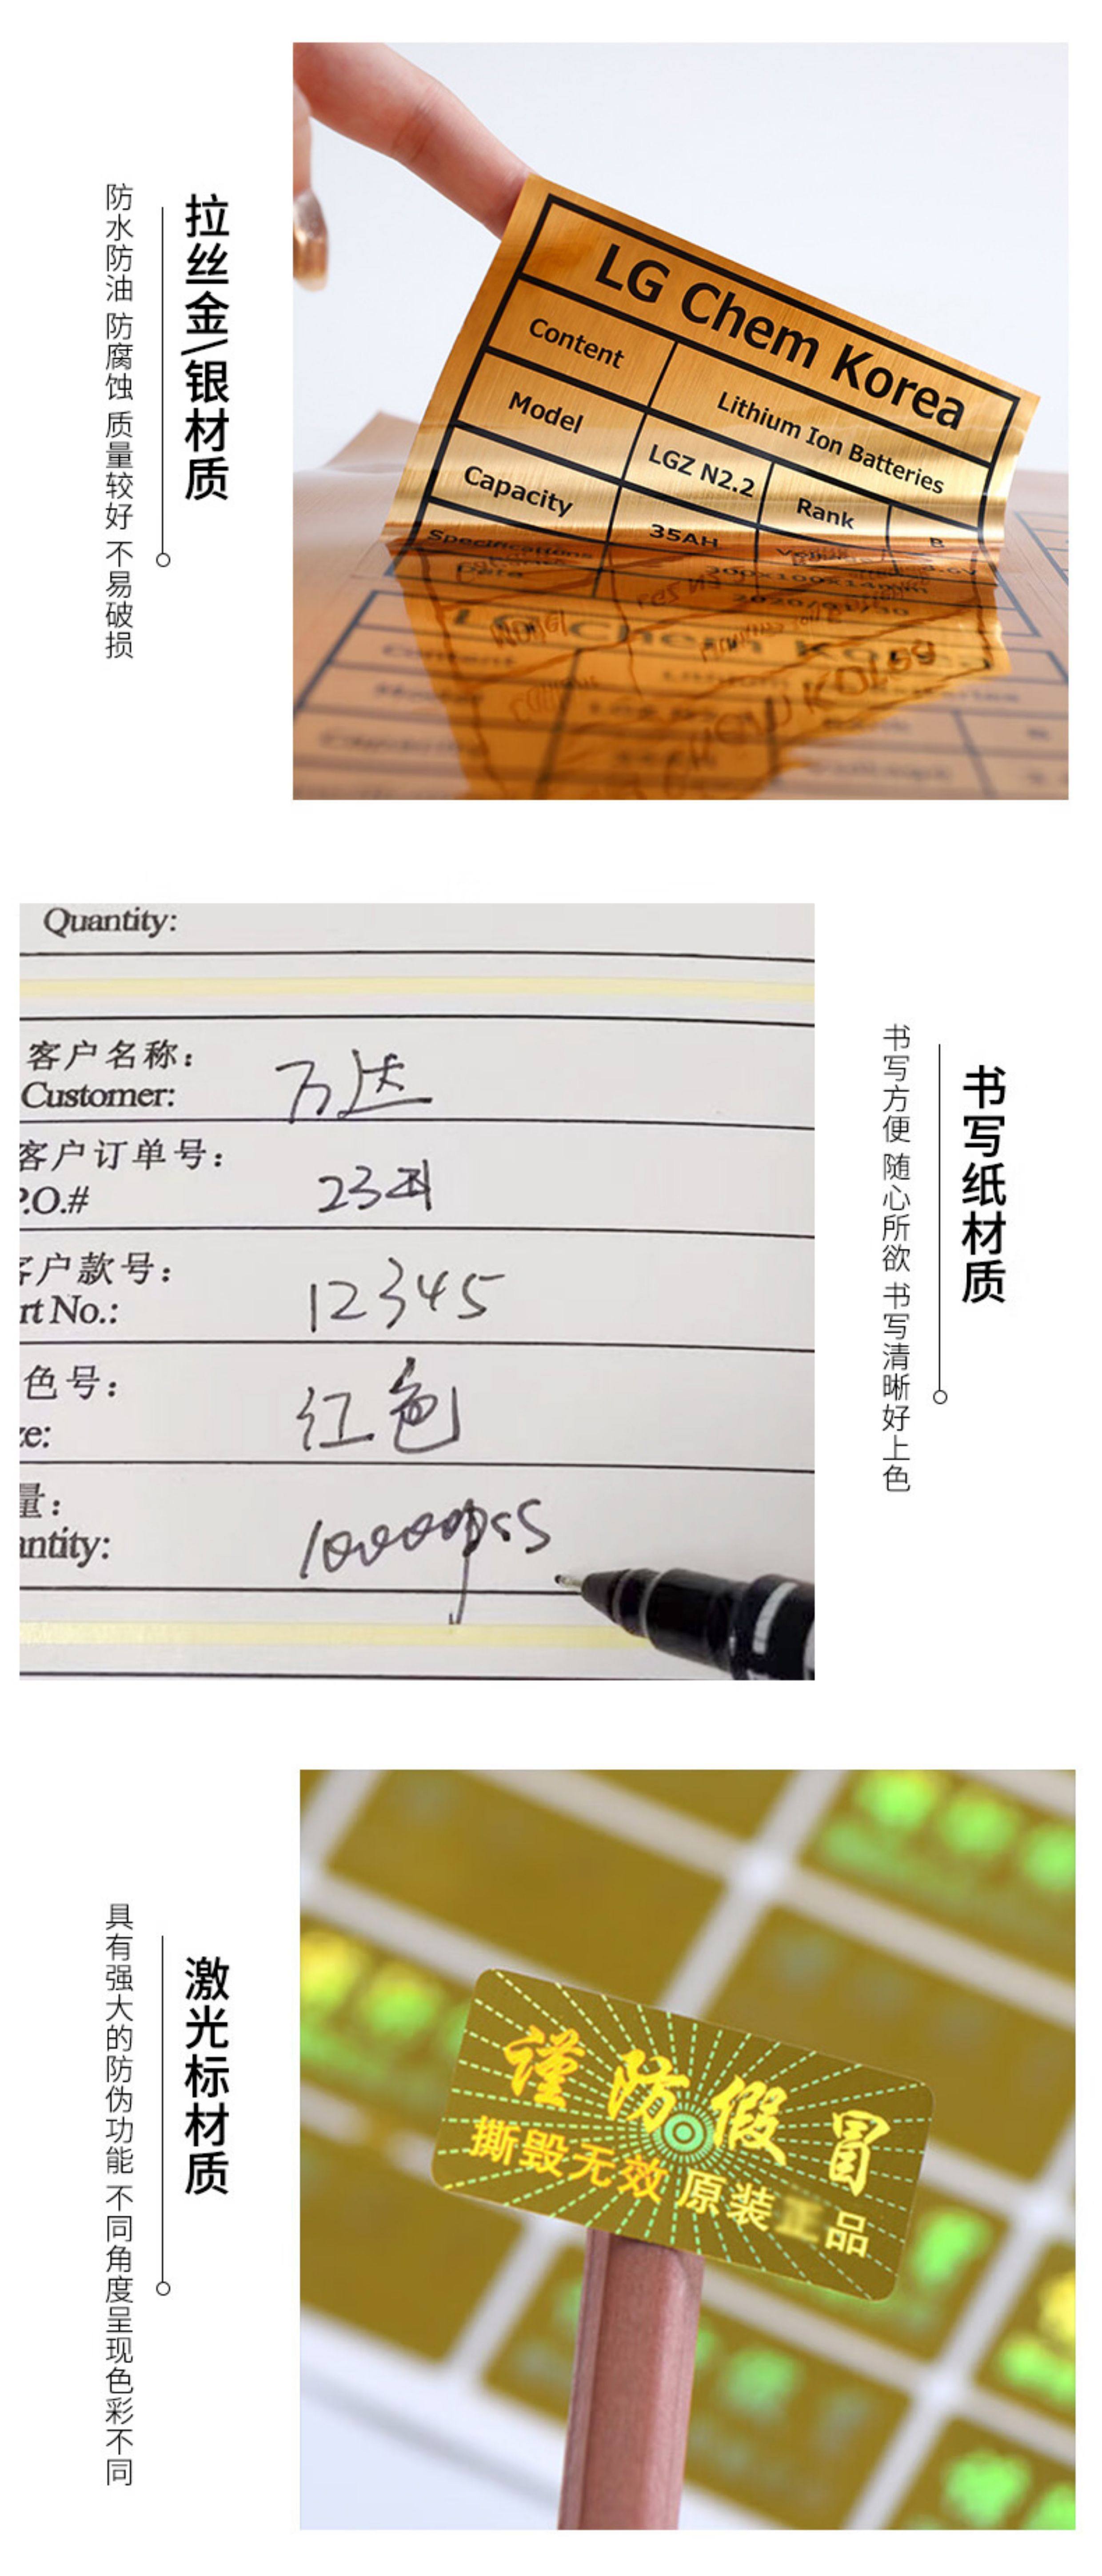 拉丝金/银材质
防水防油 防腐蚀 质量较好 不易破损
LG Chem Korea
Content
Lithium Ion Batteries
Model
LGZ N2.2
Rank
B
Capacity
35AH
Specifications
200x100x14mm
Date
2020/01/30
Quantity:
客户名称：
Customer:
万达
客户订单号：
P.O.#
客户款号：
rt No.:
12345
色号：
ze:
红色
量：
antity:
10000pcs
书写纸材质
书写方便 随心所欲 书写清晰好上色
激光标材质
具有强大的防伪功能 不同角度呈现色彩不同
谨防假冒
撕毁无效 原装正品